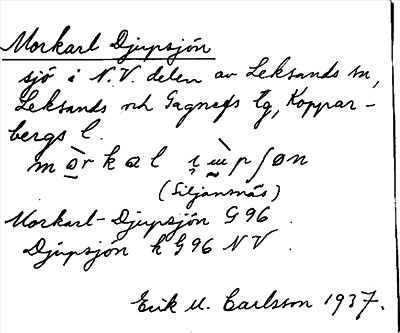 Morkarl Djupsjön
sjö i N.V. delen av Leksands sn,
Leksands och Gagnefs tg, Koppar-
bergs l.
(Siljansnäs)
Morkarl-Djupsjön G96
Djupsjön k G96 NV
Erik M. Carlsson 1937.